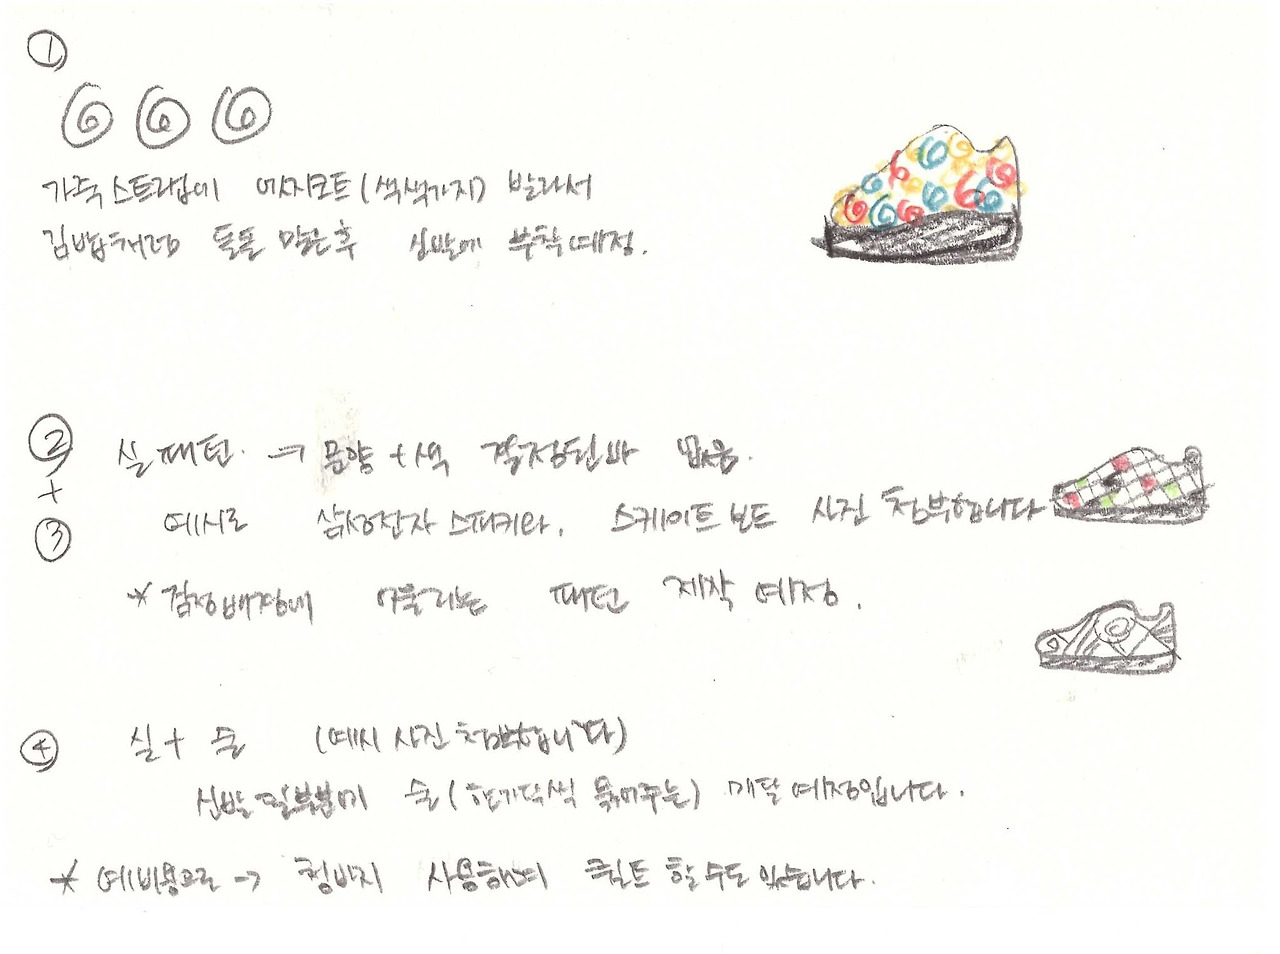 ①
가죽 스트랩에 에지코트(색색가지) 발라서
김밥처럼 돌돌 말은후 신발에 부착예정.
②
+
③
실패턴 → 문양 + 색 결정된바 없음.
예시로 삼성잔자 스피커랑, 스케이트 보드 사진 첨부합니다
* 검정배경에 어울리는 패턴 제작 예정.
④ 실 + 술 (예시 사진 첨부합니다)
신발 일부분에 술(한가닥씩 묶어주는) 매달 예정입니다.
* 예비용으로 → 청바지 사용하여 퀼트 할 수도 있습니다.